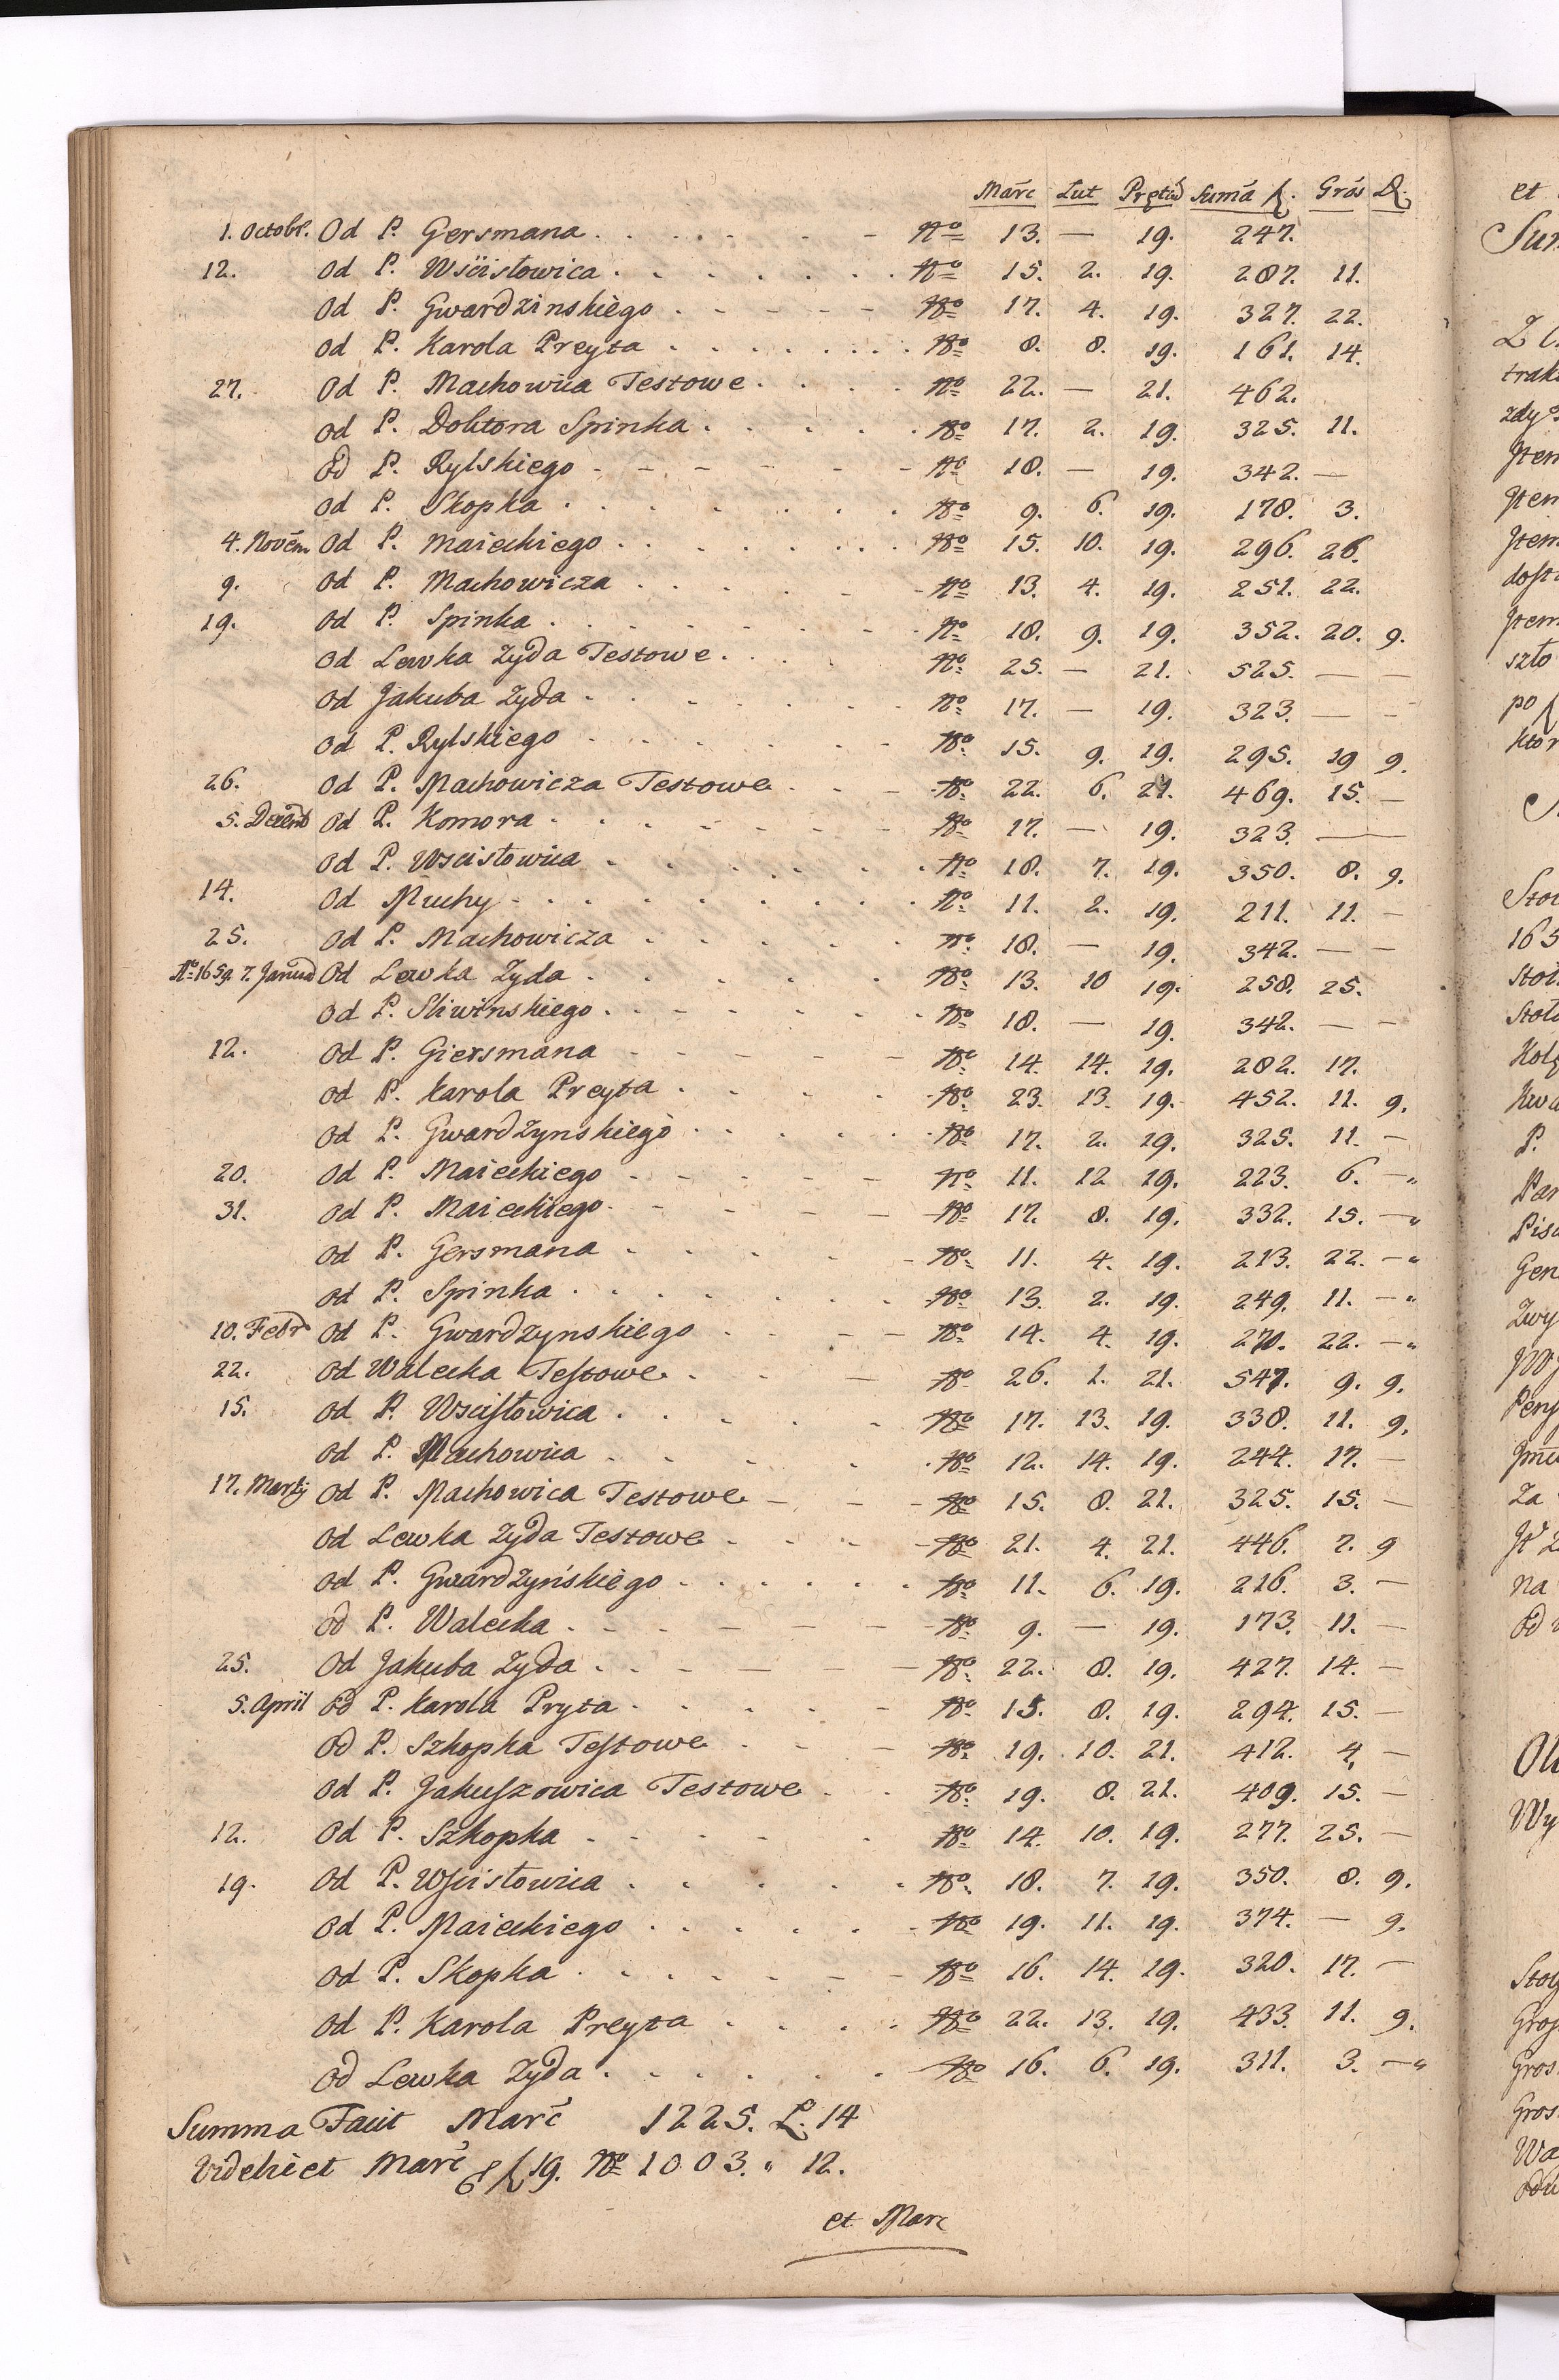 Marc Lut Prętiu Suma f. Gros D.
1. Octobr. Od P. Gersmana No 13. — 19. 247.
12. Od P. Wścistowica No 15. 2. 19. 287. 11.
Od P. Gwardzinskiego No 17. 4. 19. 327. 22.
Od P. Karola Preyta No 8. 8. 19. 161. 14.
27. Od P. Machowica Testowe No 22. — 21. 462.
Od P. Doktora Spinka No 17. 2. 19. 325. 11.
Od P. Rylskiego No 18. — 19. 342. —
Od P. Skopka No 9. 6. 19. 178. 3.
4. Novem Od P. Maieckiego No 15. 10. 19. 296. 26.
9. Od P. Machowicza No 13. 4. 19. 251. 22.
19. Od P. Spinka No 18. 9. 19. 352. 20. 9.
Od Lewka Zyda Testowe No 25. — 21. 525. — —
Od Jakuba Zyda No 17. — 19. 323. — —
Od P. Rylskiego No 15. 9. 19. 295. 19 9.
26. Od P. Machowicza Testowe No 22. 6. 21. 469. 15. —
5. Decemb Od P. Komora No 17. — 19. 323. —
Od P. Wscistowica No 18. 7. 19. 350. 8. 9.
14. Od Muchy No 11. 2. 19. 211. 11. —
25. Od P. Machowicza No 18. — 19. 342. — —
No 1659. 7. Januar Od Lewka Zyda No 13. 10 19. 258. 25.
Od P. Sliwinskiego No 18. — 19. 342. — —
12. Od P. Giersmana No 14. 14. 19. 282. 17.
Od P. Karola Preyta No 23. 13. 19. 452. 11. 9.
Od P. Gwardzynskiego No 17. 2. 19. 325. 11. —
20. Od P. Maieckiego No 11. 12 19. 223. 6. —
31. Od P. Maieckiego No 17. 8. 19. 332. 15. —
Od P. Gersmana No 11. 4. 19. 213. 22. —
Od P. Spinka No 13. 2. 19. 249. 11. —
10. Febr Od P. Gwardzynskiego No 14. 4. 19. 270. 22. —
22. Od Walecka Testowe No 26. 1. 21. 547. 9. 9.
15. Od P. Wscistowica No 17. 13. 19. 338. 11. 9.
Od P. Machowica No 12. 14. 19. 244. 17. —
17. Martij Od P. Machowica Testowe No 15. 8. 21. 325. 15. —
Od Lewka Zyda Testowe No 21. 4. 21. 446. 7. 9
Od P. Gwardzyńskiego No 11. 6. 19. 216. 3. —
Od P. Walecka No 9. — 19. 173. 11. —
25. Od Jakuba Zyda No 22. 8. 19. 427. 14. —
5. April Od P. Karola Pryta No 15. 8. 19. 294. 15. —
Od P. Szkopka Testowe No 19. 10. 21. 412. 4, —
Od P. Jakuszowica Testowe No 19. 8. 21. 409. 15. —
12. Od P. Szkopka No 14. 10. 19. 277. 25. —
19. Od P. Wscistowica No 18. 7. 19. 350. 8. 9.
Od P. Maieckiego No 19. 11. 19. 374. — 9.
Od P. Skopka No 16. 14. 19. 320. 17. —
Od P. Karola Preyta No 22. 13. 19. 433. 11. 9.
Od Lewka Zyda No 16. 6. 19. 311. 3. —
Summa Facit Marc 1225. L. 14
Videlicet Marc f 19. No 1003. " 12.
et Marc